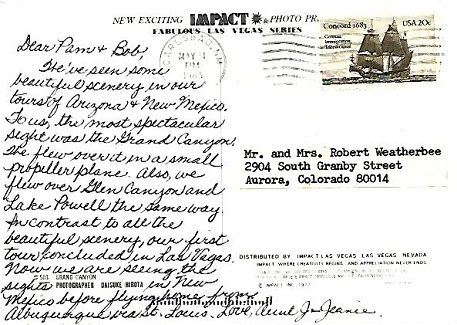 NEW EXCITING IMPACT PHOTO PR
FABULOUS LAS VEGAS SERIES
Concord 1683
German
Immigration
Bicentennial
USA 20c
CARLSBAD, NM
MAY
PM
Dear Pam & Bob,
We've seen some
beautiful scenery in our
tours of Arizona & New Mexico.
To us, the most spectacular
sight was the Grand Canyon.
We flew over it in a small
propeller plane. Also, we
flew over Glen Canyon and
Lake Powell the same way.
In contrast to all the
beautiful scenery, our first
tour concluded in Las Vegas.
Now we are seeing the
sights in New
Mexico before flying home from
Albuquerque via St. Louis. Love, Aunt J Jeanie
Mr. and Mrs. Robert Weatherbee
2904 South Granby Street
Aurora, Colorado 80014
DISTRIBUTED BY IMPACT, LAS VEGAS LAS VEGAS NEVADA
IMPACT WHERE CREATIVITY BEGINS AND APPRECIATION NEVER ENDS
© IMPACT INC 1977
GRAND CANYON
PHOTOGRAPHER DAISUKE HIROTA